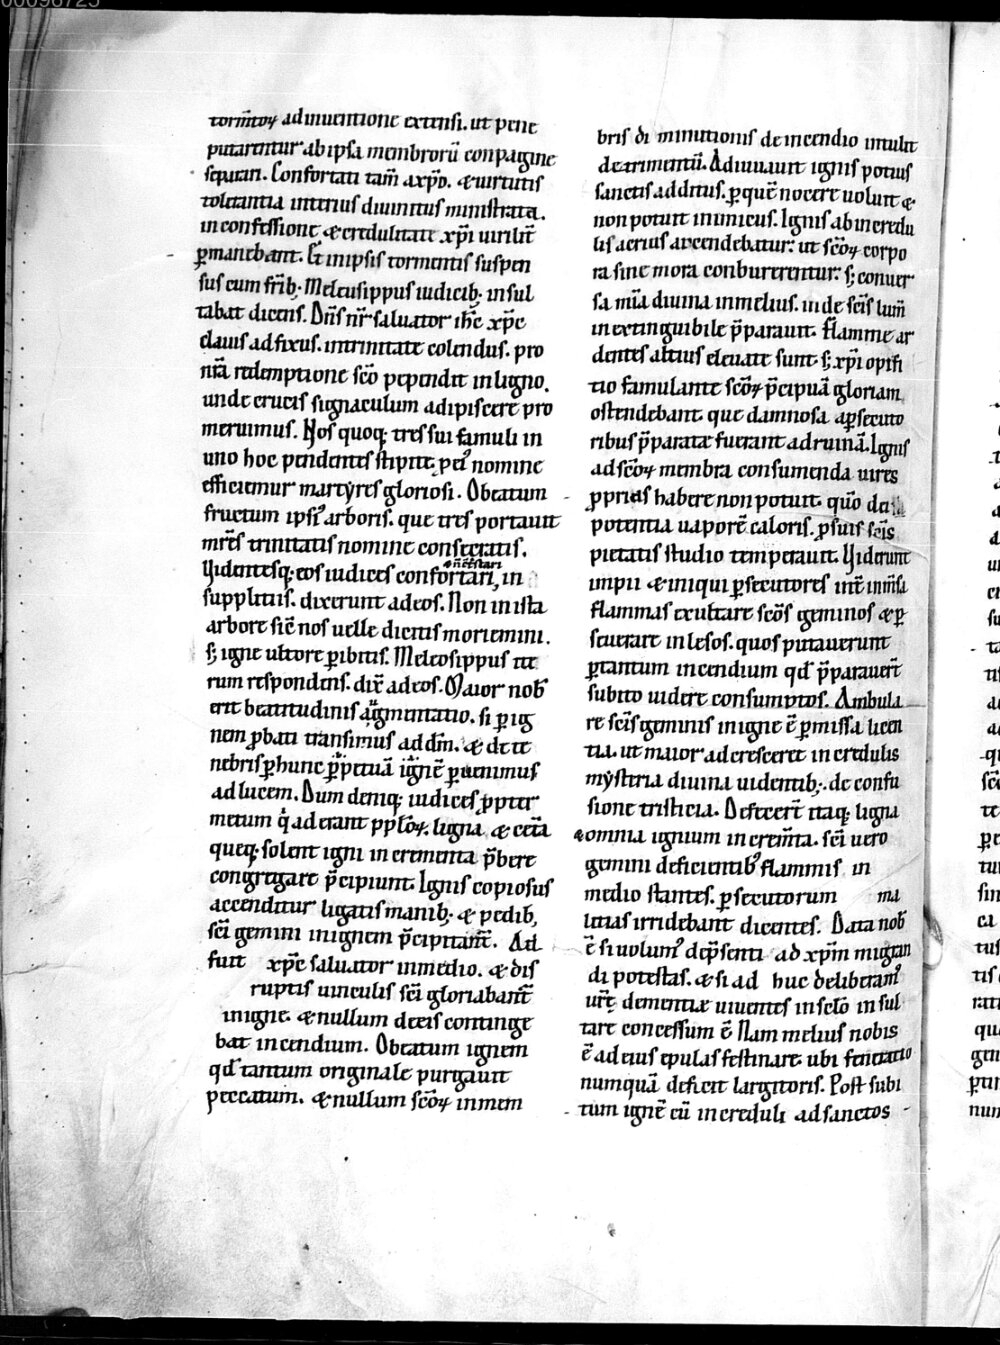 torm̃toꝝ adinuentione extensi. ut pene
putarentur ab ipsa membrorū conpagine
separari. Confortati tam̃ a xp̄o. & uirtutis
tolerantia interius diuinitus ministrata.
in confessione & credulitate xp̄i uirilit̃
ꝑmanebant. Et in ipsis tormentis suspen
sus cum frīb;. Meleusippus iudicib; insul
tabat dicens. Dn̄s nr̄ saluator ihc̄ xp̄c
clauis adfixus. intrinitate colendus. pro
nr̄a redemptione sc̄o pependit in ligno.
unde crucis signaculum adipiscere pro
meruimus. Nos quoq; tres sui famuli in
uno hoc pendentes stipite. pei᷒ nomine
efficiemur martyres gloriosi. O beatum
fructum ipsi᷒ arboris. que tres portauit
mr̄es trinitatis nomine consecratis.
Videntesq; eos iudices confortari, in
supplitiis. dixerunt ad eos. Non in ista
arbore sic̄ nos uelle dicitis moriemini.
s; igne ultore ꝑibitis. Meleosippus ite
rum respondens. dix̄ ad eos. Maior nob̄
erit beatitudinis augmentatio. si ꝑ ig
nem ꝓbati transimus ad dm̄. & de te
nebris ꝑ hunc ꝑpetuā ignē ꝑuenimus
ad lucem. Dum deniq; iudices ꝓpter
metum q̇ aderant pplōꝝ. ligna & cetā
queq; solent igni in crementa p̄bere
congregare p̄cipiunt. Ignis copiosus
accenditur ligatis manib; & pedib;
sc̄i gemini in ignem p̄cipitant̃. Ad
fuit xp̄c saluator in medio. & dis
ruptis uinculis sc̄i gloriabant̃
in igne. & nullum de eis continge
bat incendium. O beatum ignem
qd̄ tantum originale purgauit
peccatum. & nullum sc̄oꝝ in mem
bris di minutionis de incendio intulit
detrimentū. Adiuuauit ignis potius
sanctis additus. ꝑ quē nocere uoluit &
non potuit inimicus. Ignis ab incredu
lis acrius accendebatur. ut sc̄oꝝ corpo
ra sine mora conburerentur. s; conuer
sa mīa diuina in melius. inde sc̄is lum̄
inextinguibile p̄parauit. Flamme ar
dentes altius eleuate sunt s; xp̄i opifi
tio famulante sc̄oꝝ p̄cipuā gloriam
ostendebant que damnosa a ꝑsecuto
ribus p̄parata fuerant ad ruinā. Ignis
ad sc̄oꝝ membra consumenda uires
ꝓprias habere non potuit. quō dei
potentia uaporē caloris. ꝓ suis sc̄is
pietatis studio temperauit. Viderunt
impii & iniqui ꝑsecutores int̃ inm̄sa
flammas exultare sc̄os geminos & ꝑ
seuerare inlesos. quos putauerunt
ꝑ tantum incendium qd̄ p̄parauer̄t
subito uidere consumptos. Ambula
re sc̄is geminis in igne ē ꝑmissa licen
tia. ut maior adcresceret incredulis
mysteria diuina uidentib;. de confu
sione tristicia. Defecer̄t itaq; ligna
& omnia ignium increm̄ta. sc̄i uero
gemini deficientib᷒ flammis in
medio stantes. ꝑsecutorum ma
litias irridebant dicentes. Data nob̄
ē si uolum᷒ de p̄senti ad xp̄m migran
di potestas. & si ad huc deliberam᷒
ur̄e dementiæ uiuentes in sc̄lo insul
tare concessum ē Nam melius nobis
ē ad eius epulas festinare. ubi
numquā deficit largitoris. Post subi
tum ignē cū increduli ad sanctos